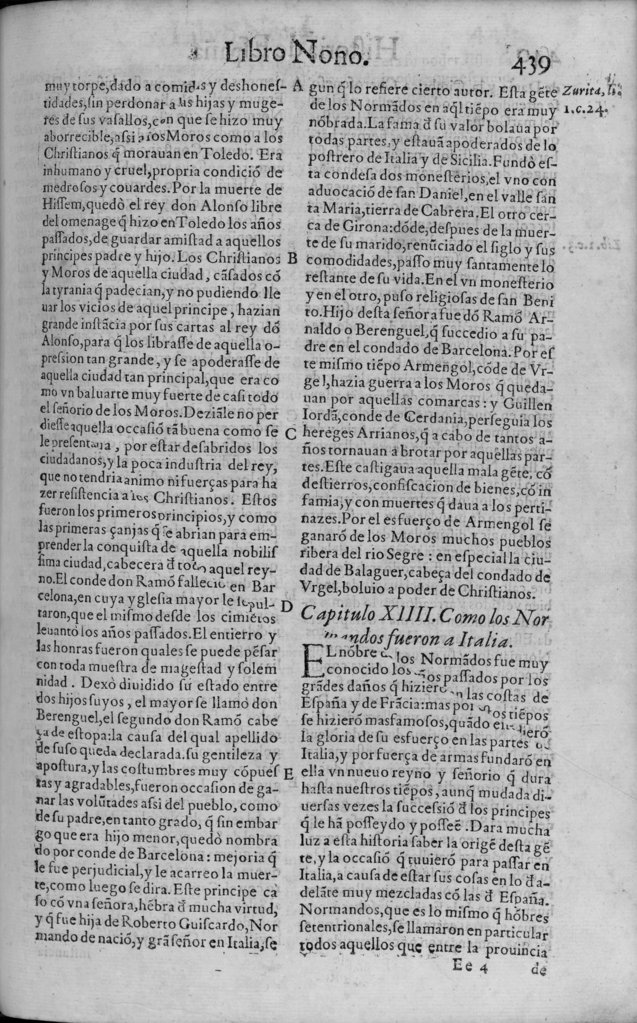 Libro Nono.
439
muy torpe, dado a comidas y deshones-
tidades, sin perdonar a sus hijas y muge-
res de sus vasallos, con que se hizo muy
aborrecible, assi a los Moros como a los
Christianos q̃ morauan en Toledo. Era
inhumano y cruel, propria condició de
medrosos y couardes. Por la muerte de
Hissem, quedò el rey don Alonso libre
del omenage q̃ hizo en Toledo los años
passados, de guardar amistad a aquellos
principes padre y hijo. Los Christianos
y Moros de aquella ciudad, cãsados cõ
la tyrania q̃ padecian, y no pudiendo lle
uar los vicios de aquel principe, hazian
grande instãcia por sus cartas al rey dõ
Alonso, para q̃ los librasse de aquella o-
pression tan grande, y se apoderasse de
aquella ciudad tan principal, que era co
mo vn baluarte muy fuerte de casi todo
el señorio de los Moros. Deziãle no per
diesse aquella occasiõ tã buena como se
le presentaua, por estar desabridos los
ciudadanos, y la poca industria del rey,
que no tendria animo ni fuerças para ha
zer resistencia a los Christianos. Estos
fueron los primeros principios, y como
las primeras çanjas q̃ se abrian para em-
prender la conquista de aquella nobilis
sima ciudad, cabecera đ todo aquel rey-
no. El conde don Ramõ fallecio en Bar
celona, en cuya yglesia mayor le sepul-
taron, que el mismo desde los cimiẽtos
leuantò los años passados. El entierro y
las honras fueron quales se puede pẽsar
con toda muestra de magestad y solem
nidad. Dexò diuidido su estado entre
dos hijos suyos, el mayor se llamò don
Berenguel, el segundo don Ramõ cabe
ça de estopa: la causa del qual apellido
de suso queda declarada. su gentileza y
apostura, y las costumbres muy cõpues
tas y agradables, fueron occasion de ga-
nar las volũtades assi del pueblo, como
de su padre, en tanto grado, q̃ sin embar
go que era hijo menor, quedò nombra
do por conde de Barcelona: mejoria q̃
le fue perjudicial, y le acarreo la muer-
te, como luego se dira. Este principe ca
so cõ vna señora, hẽbra đ mucha virtud,
y q̃ fue hija de Roberto Guiscardo, Nor
mando de nació, y grã señor en Italia, se
A
B
C
D
E
gun q̃ lo refiere cierto autor. Esta gẽte
de los Normãdos en aq̃l tiẽpo era muy
nõbrada. La fama đ su valor bolaua por
todas partes, y estauã apoderados de lo
postrero de Italia y de Sicilia. Fundò es-
ta condesa dos monesterios, el vno con
aduocació de san Daniel, en el valle san
ta Maria, tierra de Cabrera. El otro cer-
ca de Girona: dõde, despues de la muer-
te de su marido, renũciado el siglo y sus
comodidades, passo muy santamente lo
restante de su vida. En el vn monesterio
y en el otro, puso religiosas de san Beni
to. Hijo desta señora fue dõ Ramõ Ar-
naldo o Berenguel, q̃ succedio a su pa-
dre en el condado de Barcelona. Por es
te mismo tiẽpo Armengol, cõde de Vr-
gel, hazia guerra a los Moros q̃ queda-
uan por aquellas comarcas: y Guillen
Iordã, conde de Cerdania, perseguia los
hereges Arrianos, q̃ a cabo de tantos a-
ños tornauan a brotar por aquellas par-
tes. Este castigaua aquella mala gẽte. cõ
destierros, confiscacion de bienes, cõ in
famia, y con muertes q̃ daua a los perti-
nazes. Por el esfuerço de Armengol se
ganarõ de los Moros muchos pueblos
ribera del rio Segre: en especial la ciu-
dad de Balaguer, cabeça del condado de
Vrgel, boluio a poder de Christianos.
Capitulo XIIII. Como los Nor
mandos fueron a Italia.
EL nõbre de los Normãdos fue muy
conocido los años passados por los
grãdes daños q̃ hizierõ en las costas de
España y de Frãcia: mas por estos tiẽpos
se hizierõ mas famosos, quãdo estẽdierõ
la gloria de su esfuerço en las partes de
Italia, y por fuerça de armas fundarõ en
ella vn nueuo reyno y señorio q̃ dura
hasta nuestros tiẽpos, aunq̃ mudada di-
uersas vezes la successiõ đ los principes
q̃ le hã posseydo y posseẽ. Dara mucha
luz a esta historia saber la origẽ desta gẽ
te, y la occasiõ q̃ tuuierõ para passar en
Italia, a causa de estar sus cosas en lo đ a-
delãte muy mezcladas cõ las đ España.
Normandos, que es lo mismo q̃ hõbres
setentrionales, se llamaron en particular
todos aquellos que entre la prouincia
Zurita, li.
1. c. 24.
Ee 4
de